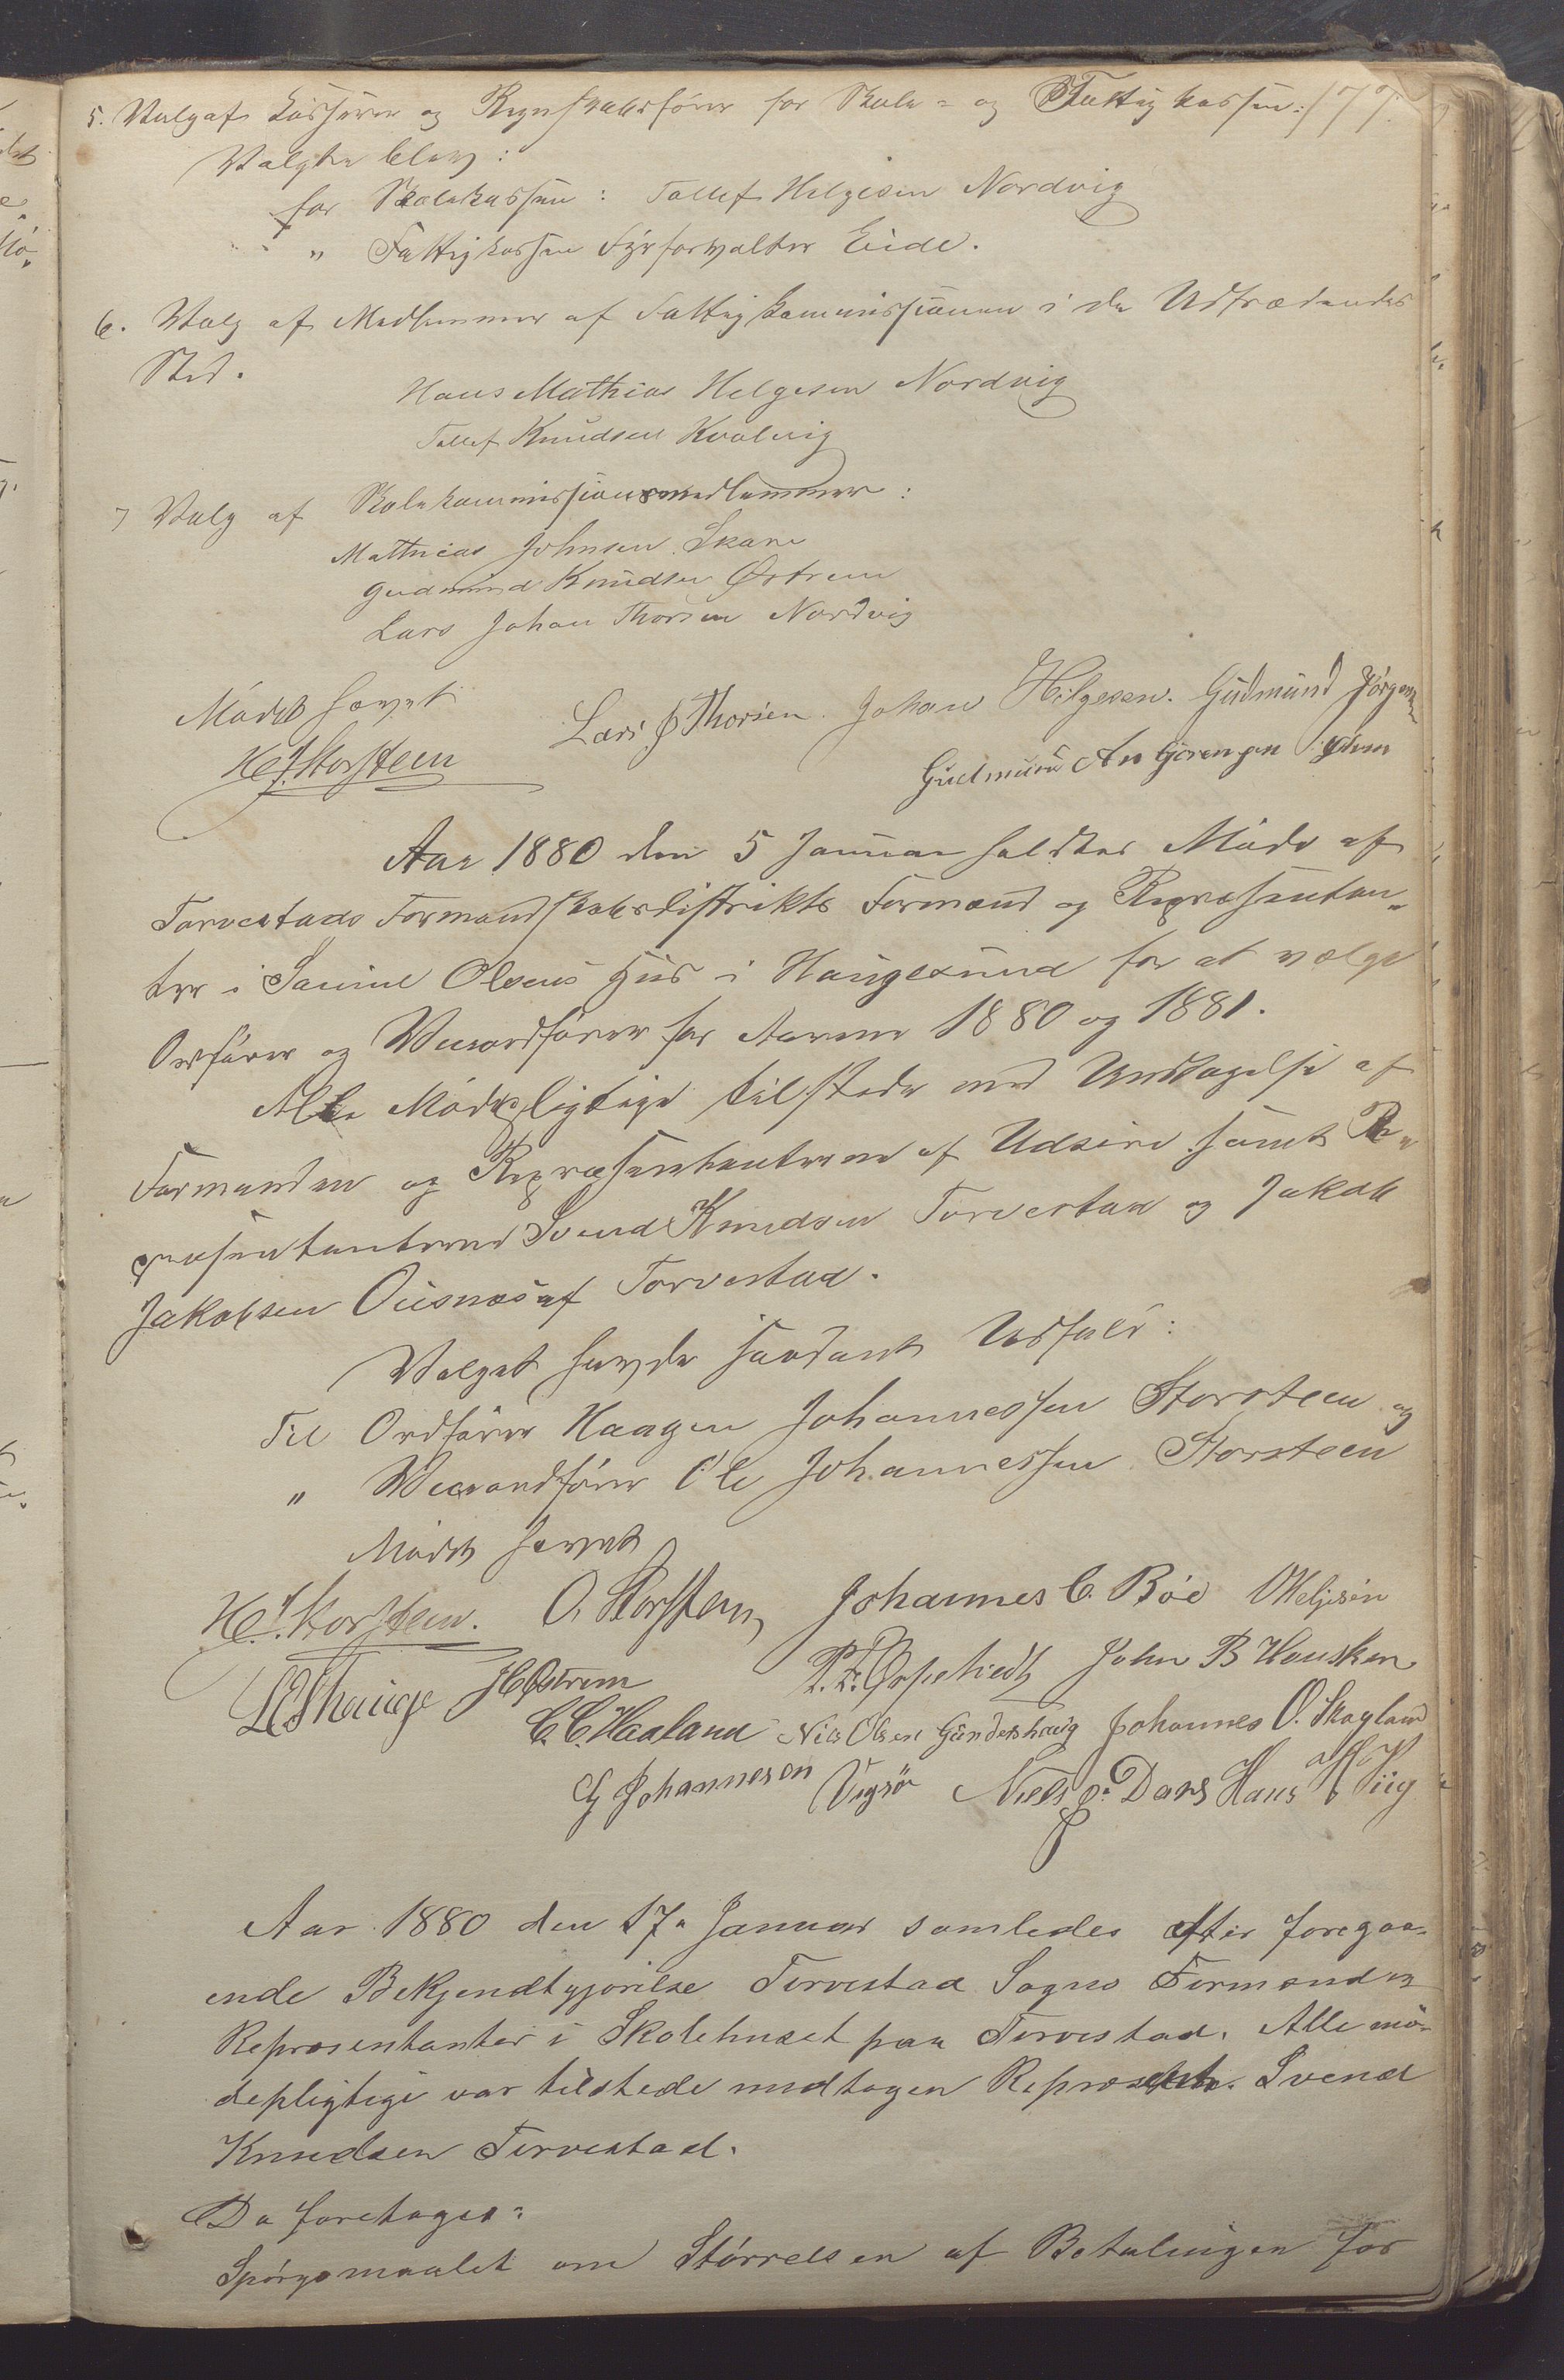 177.
5. Valg af Kasserer og Regnskabsfører for Skole- og Fattigkassen:
Valgte blev:
for Skolekassen: Tollef Helgesen Nordvig
" Fattigkassen Fyrforvalter Eide.
6. Valg af Medlemmer af Fattigkommissionen i de Udtrædendes
Sted.
Hans Mathias Helgesen Nordvig
Tollef Knudsen Kvalvig
7 Valg af Skolekommissionsmedlemmer:
Mathias Johnsen Skare
Gudmund Knudsen Østrem
Lars Johan Thorsen Nordvig
Mødet hævet
H. J. Storsteen Lars J Thorsen. Johan Helgesen. Gudmund Jørgensen
Gudmund
Aar 1880 den 5 Januar holdtes Møde af
Torvestads Formandskabsdistrikts Formænd og Repræsentan-
ter i Samuel Olsens Hus i Haugesund for at vælge
Ordfører og Viceordfører for Aarene 1880 og 1881.
Alle Mødepligtige tilstede med Undtagelse af
Formanden og Repræsentanterne af Udsire samt Re-
præsentanterne Svend Knudsen Torvestad og Jakob
Jakobsen Ousnæs af Torvestad.
Valget havde saadant Udfald:
Til Ordfører Haagen Johannessen Storsteen og
" Viceordfører Ole Johannessen Storsteen
Mødet hævet
H. J. Storsteen. O. Storsteen, Johannes C. Bøe O Helgesen
J H Østrem John B Hausken
C. C. Haaland Nils Olsen Gundershaug Johannes O. Skogland
G Johannesen Vigsø Niels J. Dans Hans H Viig
Aar 1880 den 17. Januar samledes efter foregaa-
ende Bekjendtgjørelse Torvestad Sogns Formænd og
Repræsentanter i Skolehuset paa Torvestad. Alle mø-
depligtige var tilstede undtagen Repræsent. Svend
Knudsen Torvestad.
Da foretoges:
Spørgsmaalet om Størrelsen af Betalingen for